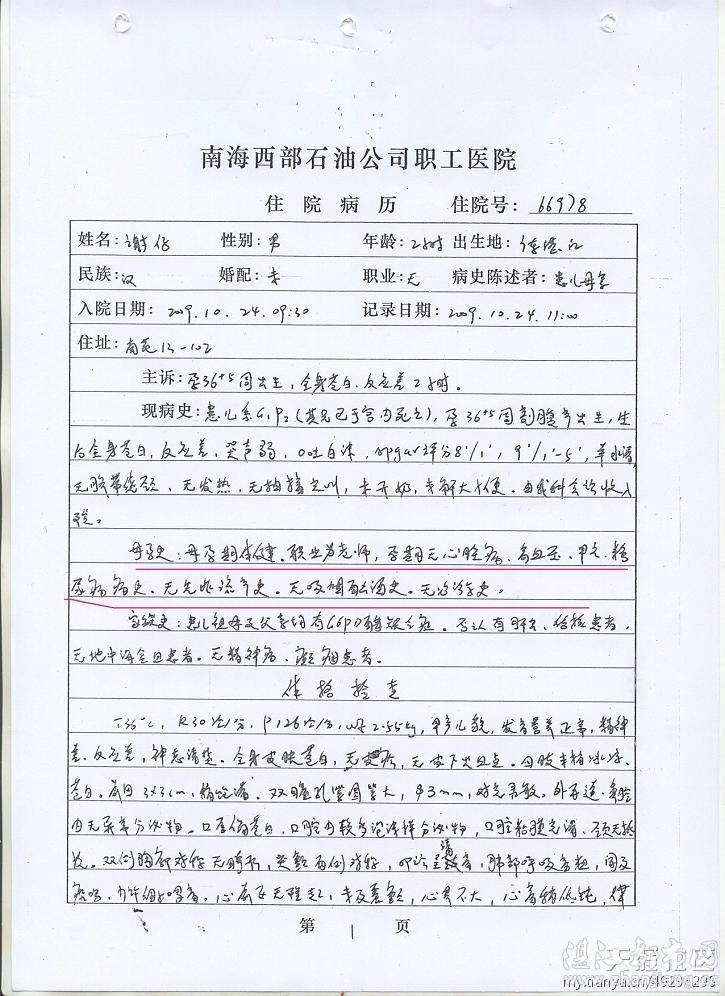 南海西部石油公司职工医院
住院病历 住院号: 66978
姓名: 性别: 男 年龄: 2小时 出生地:
民族: 汉 婚配: 未 职业: 无 病史陈述者: 患儿母亲
入院日期: 2009.10.24.09:30 记录日期: 2009.10.24.11:00
住址: 南苑13-102
主诉: 孕36+5周出生,全身苍白、反应差2小时。
现病史: 患儿系G1P2(其兄已于宫内死亡),孕36+5周剖腹产出生,生
后全身苍白,反应差,哭声弱,口吐白沫,apgar评分8'/1', 9'/1'-5', 羊水清,
无脐带绕颈,无发热,无抽搐尖叫,未开奶,未解大小便。由我科会诊收入
院。
母孕史: 母孕期体健、职业为老师,孕期无心脏病、高血压、甲亢、糖
尿病病史、无先兆流产史。无吸烟酗酒史。无冶游史。
家族史: 患儿祖母及父亲均有G6PD酶缺乏症。否认有肝炎、结核患者,
无地中海贫血患者。无精神病、癫痫患者。
体格检查
T36℃, R30次/分, P126次/分, wt 2.55kg, 早产儿貌,发育营养正常,精神
差、反应差,神志清楚。全身皮肤苍白,无皮疹,无皮下出血点。
苍白。前囟3×3cm,双瞳孔等圆等大,φ3mm,对光灵敏。外耳道、鼻腔
内无异常分泌物。口唇苍白,口腔内较多泡沫样分泌物,口腔粘膜光滑、颈无抵
抗。双侧胸廓对称无畸形,两侧对称,叩诊呈清音,肺部呼吸音粗,闻及
痰鸣、心前区无隆起,未及震颤,心界不大,心音稍低钝,律
第 1 页